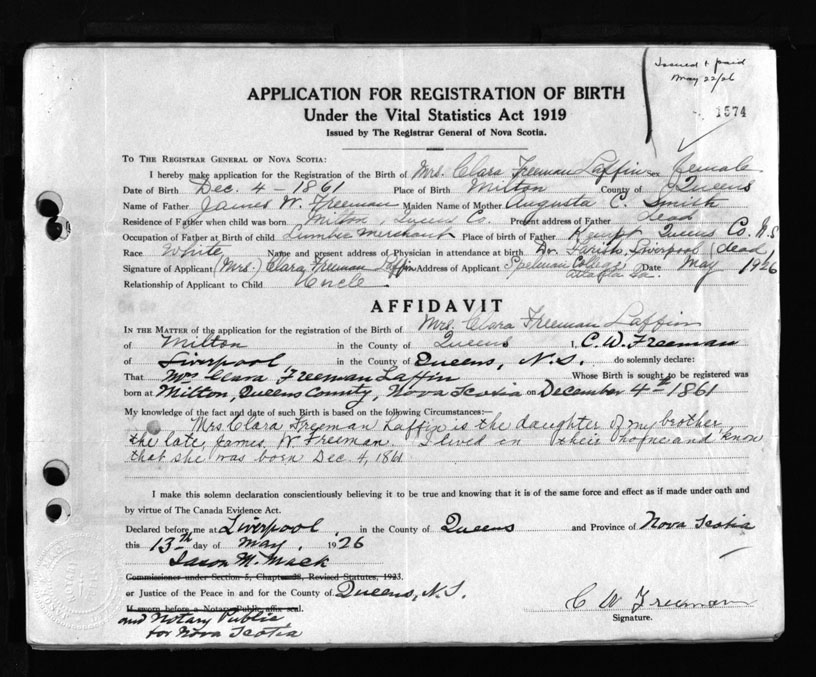 Issued & paid
May 22/26
1574
APPLICATION FOR REGISTRATION OF BIRTH
Under the Vital Statistics Act 1919
Issued by The Registrar General of Nova Scotia.
TO THE REGISTRAR GENERAL OF NOVA SCOTIA:
I hereby make application for the Registration of the Birth of Mrs. Clara Freeman Laffin Sex female
Date of Birth Dec. 4 - 1861 Place of Birth Milton County of Queens
Name of Father James W. Freeman Maiden Name of Mother Augusta C. Smith
Residence of Father when child was born Milton, Queens Co. Present address of Father dead
Occupation of Father at Birth of child Lumber Merchant Place of birth of Father Kempt Queens Co. N.S
Race White Name and present address of Physician in attendance at birth Dr. Farish, Liverpool (dead)
Signature of Applicant (Mrs.) Clara Freeman Laffin Address of Applicant Spelman College Atlanta Ga. Date May 1926
Relationship of Applicant to Child Uncle
AFFIDAVIT
IN THE MATTER of the application for the registration of the Birth of Mrs. Clara Freeman Laffin
of Milton in the County of Queens I, C. W. Freeman
of Liverpool in the County of Queens, N.S. do solemnly declare:
That Mrs Clara Freeman Laffin Whose Birth is sought to be registered was
born at Milton, Queens County, Nova Scotia on December 4th 1861
My knowledge of the fact and date of such Birth is based on the following Circumstances:—
Mrs Clara Freeman Laffin is the daughter of my brother,
the late, James, W Freeman. I lived in their home and know
that she was born Dec. 4, 1861
I make this solemn declaration conscientiously believing it to be true and knowing that it is of the same force and effect as if made under oath and
by virtue of The Canada Evidence Act.
Declared before me at Liverpool, in the County of Queens and Province of Nova Scotia
this 13th day of May, 1926
Jason M. Mack
Commissioner under Section 5, Chapter 38, Revised Statutes, 1923.
or Justice of the Peace in and for the County of Queens, N.S.
If sworn before a Notary Public, affix seal.
and Notary Public
for Nova Scotia
C W Freeman
Signature.